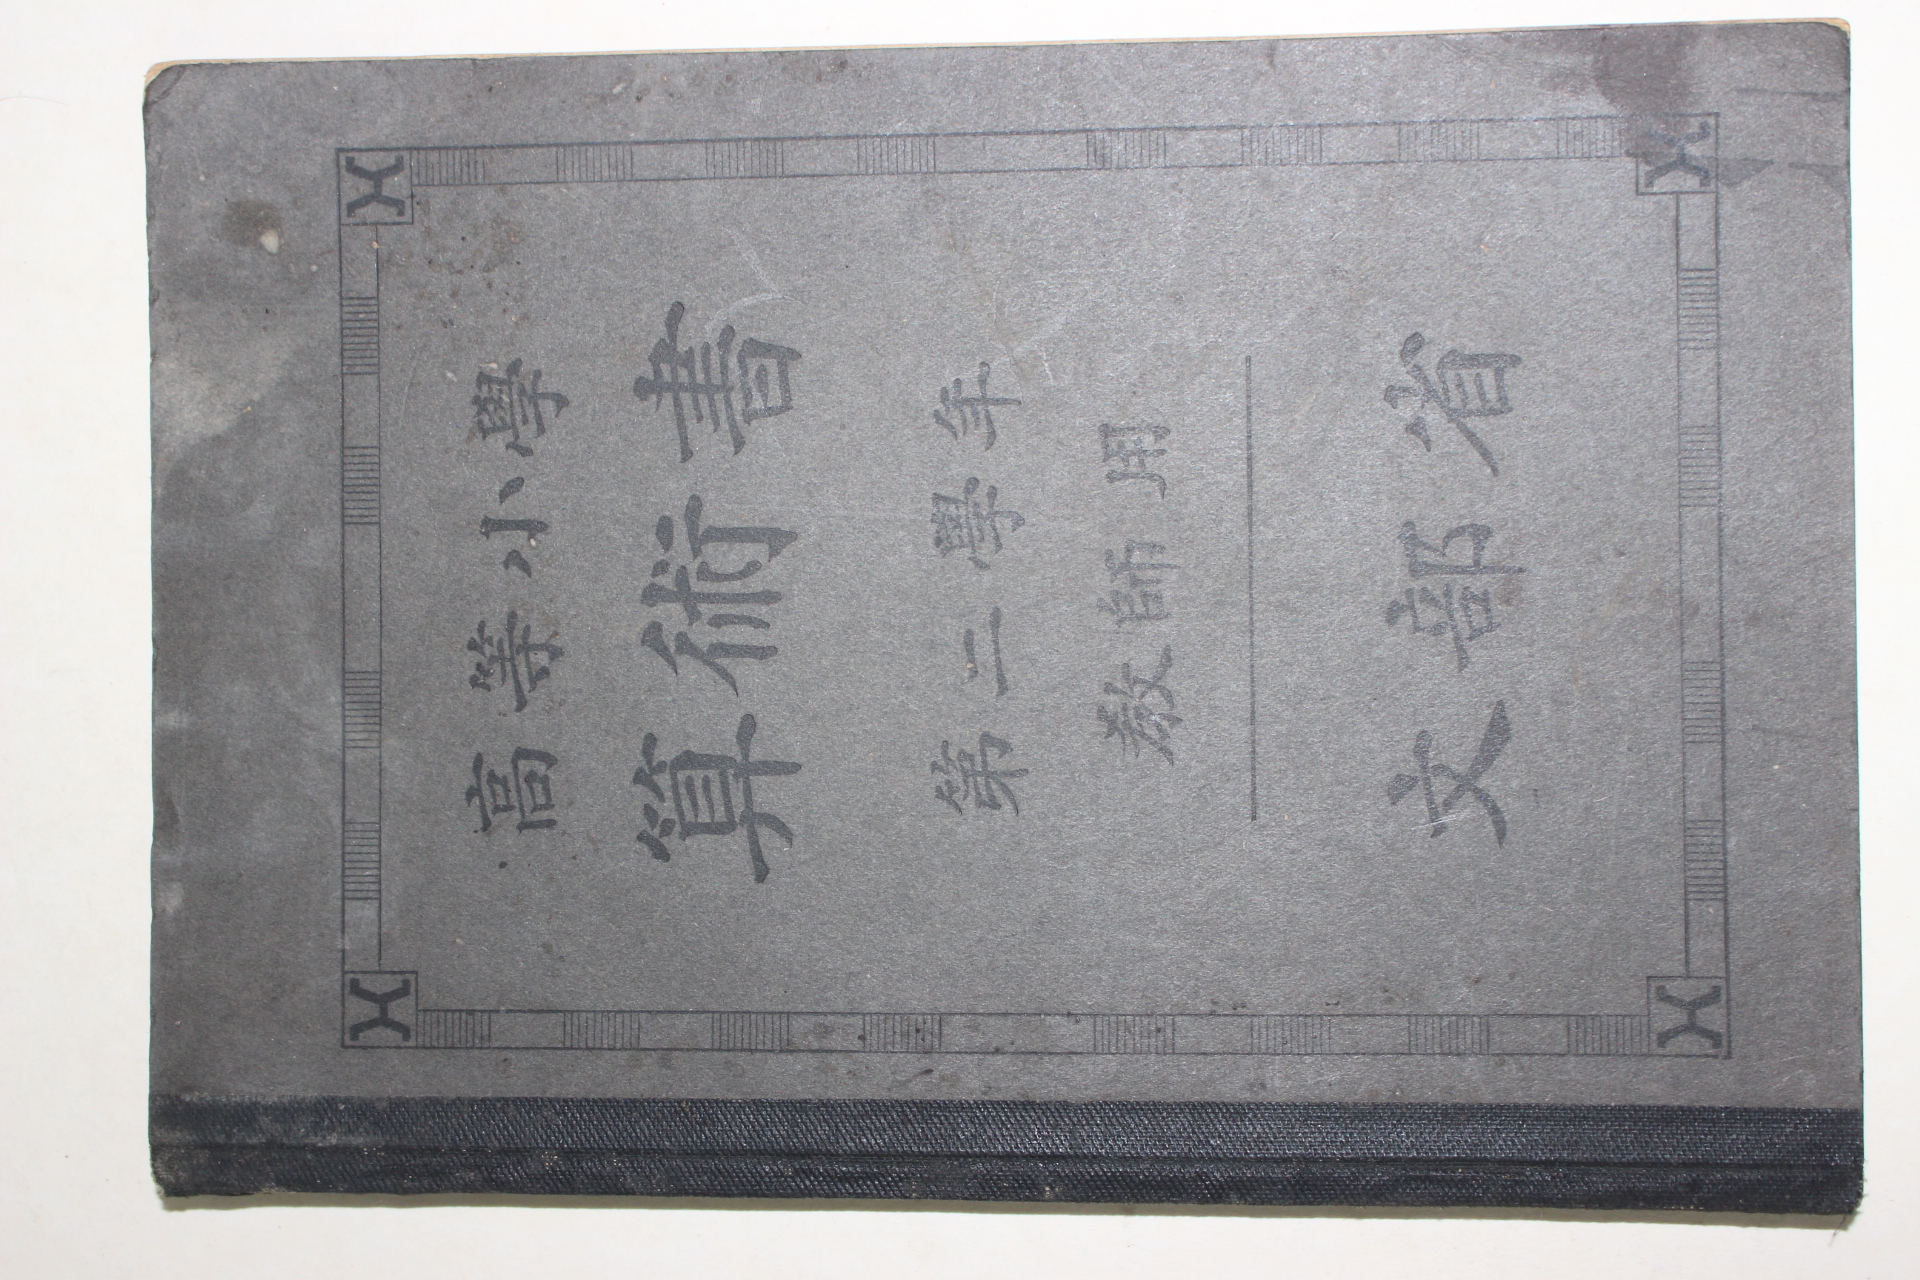 高等小學
算術書
第二學年
敎師用
文部省